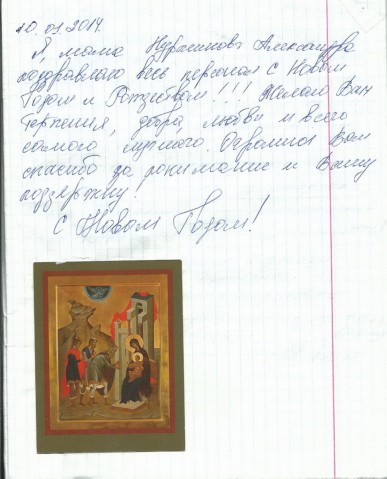 10.01.2014.
Я, мама Александра
поздравляю весь персонал с Новым
Годом и Рождеством!!! Желаю Вам
терпения, добра, любви и всего
самого лучшего. Огромное Вам
спасибо за понимание и Вашу
поддержку!
С Новым Годом!